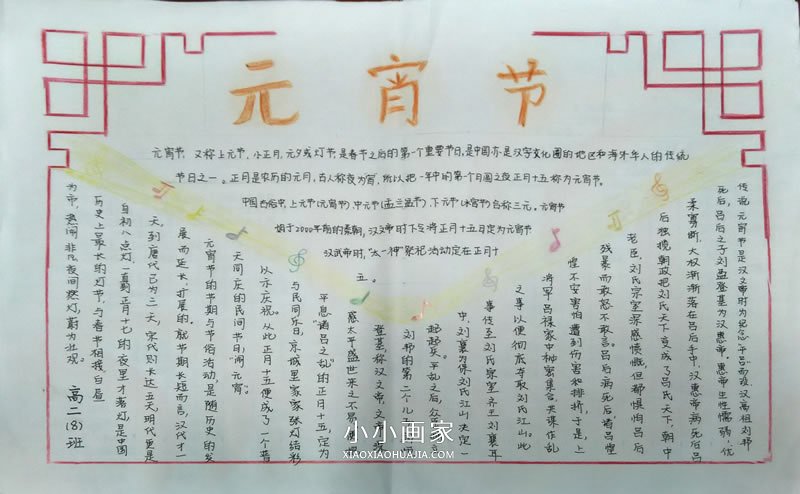 元宵节
元宵节，又称上元节，小正月，元夕或灯节，是春节之后的第一个重要节日，是中国亦是汉字文化圈的地区和海外华人的传统
节日之一。正月是农历的元月，古人称夜为宵，所以把一年中的第一个月圆之夜正月十五称为元宵节。
中国古俗中，上元节(元宵节)中元节(盂兰盆节)，下元节(水官节)合称三元。元宵节
始于2000年前的秦朝，汉文帝时下令将正月十五日定为元宵节
汉武帝时，"太一神"祭祀活动定在正月十
五。
传说元宵节是汉文帝时为纪念平吕而设，汉高祖刘邦
死后，吕后之子刘盈登基为汉惠帝，惠帝生性懦弱，优
柔寡断，大权渐渐落在吕后手中，汉惠帝病死后吕
后独揽朝政把刘氏天下变成了吕氏天下，朝中
老臣，刘氏宗室深感愤慨，但都惧怕吕后
残暴而敢怒不敢言。吕后病死后诸吕惶
惶不安害怕遭到伤害和排挤，于是上
将军吕禄家中秘密集合，共谋作乱
之事以便彻底夺取刘氏江山。此
事传至刘氏宗室齐王刘襄耳
中，刘襄为保刘氏江山决定
起兵，平乱之后，众
刘邦的第二个儿
登基，称汉文帝，文帝
感太平盛世来之不易
平息"诸吕之乱"的正月十五，定为
与民同乐日，京城里家家张灯结彩
以示庆祝。从此正月十五便成了一个普
天同庆的民间节日"闹元宵。
元宵节的节期与节俗活动，是随历史的发
展而延长，扩展的。就节期长短而言，汉代才一
天，到唐代已为三天，宋代则长达五天，明代更是
自初八点灯，一直到正月十七的夜里才落灯，是中国
历史上最长的灯节，与春节相接，白昼
为市，热闹非凡夜间燃灯，蔚为壮观。
高二(8)班
小小画家
XIAOXIAOHUAJIA.COM